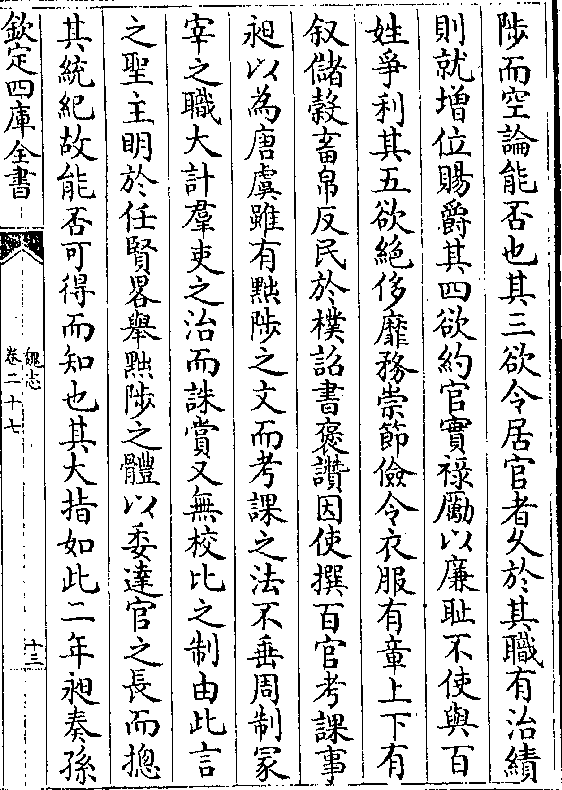 陟而空論能否也其三欲令居官者久於其職有治績
則就増位賜爵其四欲約官實禄勵以廉耻不使與百
姓爭利其五欲絶侈靡務崇節儉令衣服有章上下有
叙儲榖畜帛反民於樸詔書褒讚因使撰百官考課事
昶以為唐虞雖有黜陟之文而考課之法不垂周制冡
宰之職大計羣吏之治而誅賞又無校比之制由此言
之聖主明於任賢畧舉黜陟之體以委達官之長而摠
其統紀故能否可得而知也其大指如此二年昶奏孫
欽定四庫全書
魏志
卷二十七
十三